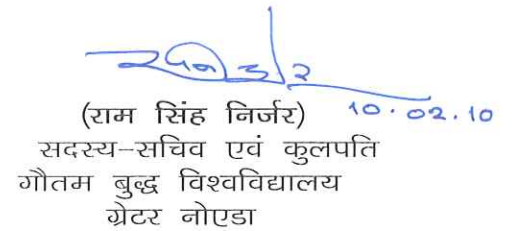 (राम सिंह निर्जर) 10.02.10
सदस्य-सचिव एवं कुलपति
गौतम बुद्ध विश्वविद्यालय
ग्रेटर नोएडा